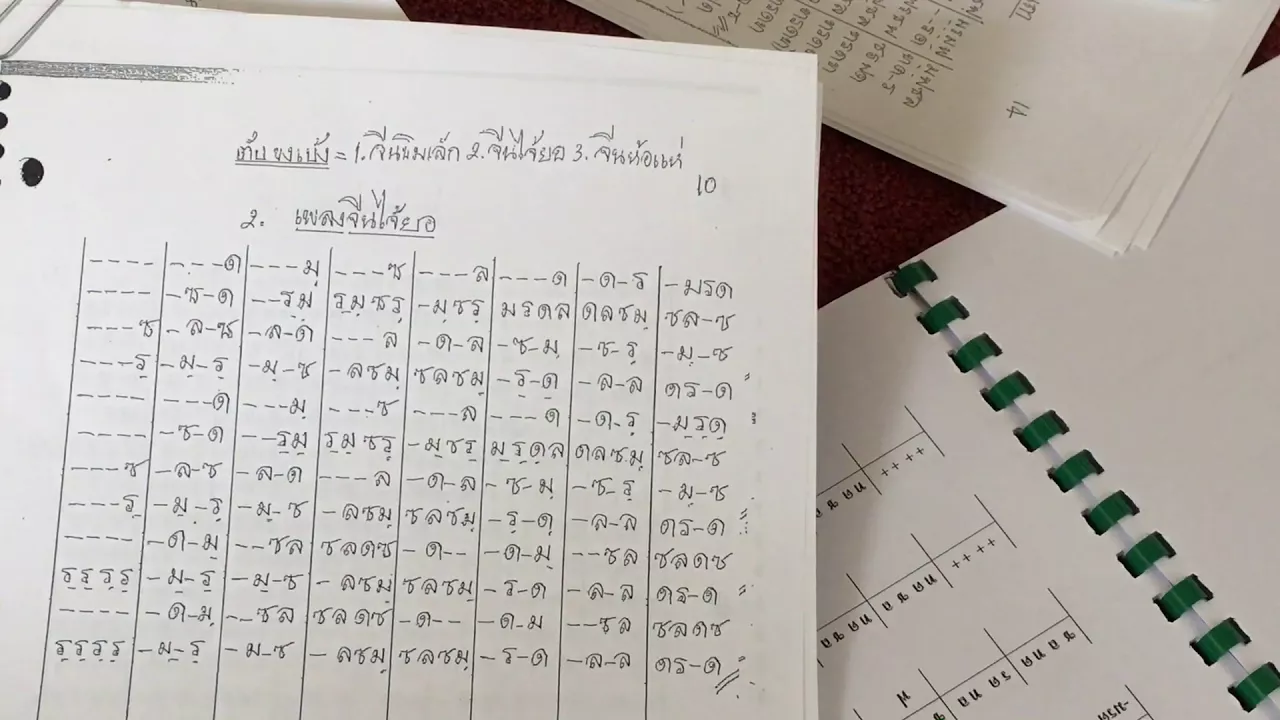 ตับ ขงเบ้ง = 1. จีนขิมเล็ก 2. จีนไจ้ยอ 3. จีนห้อแห่
10
2. เพลงจีนไจ้ยอ
---- | ---ด | ---มฺ | ---ซ | ---ล | ---ด | -ด-ร | -มรด
---- | -ซ-ด | --รฺมฺ | รฺมฺซรฺ | -มฺซรฺ | มรดล | ดลซมฺ | ซล-ซ
---ซ | -ล-ซ | -ล-ด | ---ล | -ด-ล | -ซ-มฺ | -ซ-รฺ | -มฺ-ซ
---รฺ | -มฺ-รฺ | -มฺ-ซ | -ลซมฺ | ซลซมฺ | -รฺ-ดฺ | -ล-ล | ดร-ด "
---- | ---ด | ---มฺ | ---ซ | ---ล | ---ด | -ด-รฺ | -มฺรฺดฺ
---- | -ซ-ด | --รฺมฺ | รฺมฺซรฺ | -มฺซรฺ | มฺรฺดฺล | ดลซมฺ | ซล-ซ
---ซ | -ล-ซ | -ล-ด | ---ล | -ด-ล | -ซ-มฺ | -ซ-รฺ | -มฺ-ซ
---รฺ | -มฺ-รฺ | -มฺ-ซ | -ลซมฺ | ซลซมฺ | -รฺ-ดฺ | -ล-ล | ดร-ด
---- | -ด-มฺ | --ซล | ซลดซ | -ด-- | -ด-มฺ | --ซล | ซลดซ
รฺรฺรฺรฺ | -มฺ-รฺ | -มฺ-ซ | -ลซมฺ | ซลซมฺ | -ร-ด | -ล-ล | ดร-ด "
---- | -ด-มฺ | --ซล | ซลดซ | -ด-- | -ด-ม | --ซล | ซลดซ
รฺรฺรฺรฺ | -มฺ-รฺ | -ม-ซ | -ลซมฺ | ซลซมฺ | -ร-ด | -ล-ล | ดร-ด
14
++++
++++